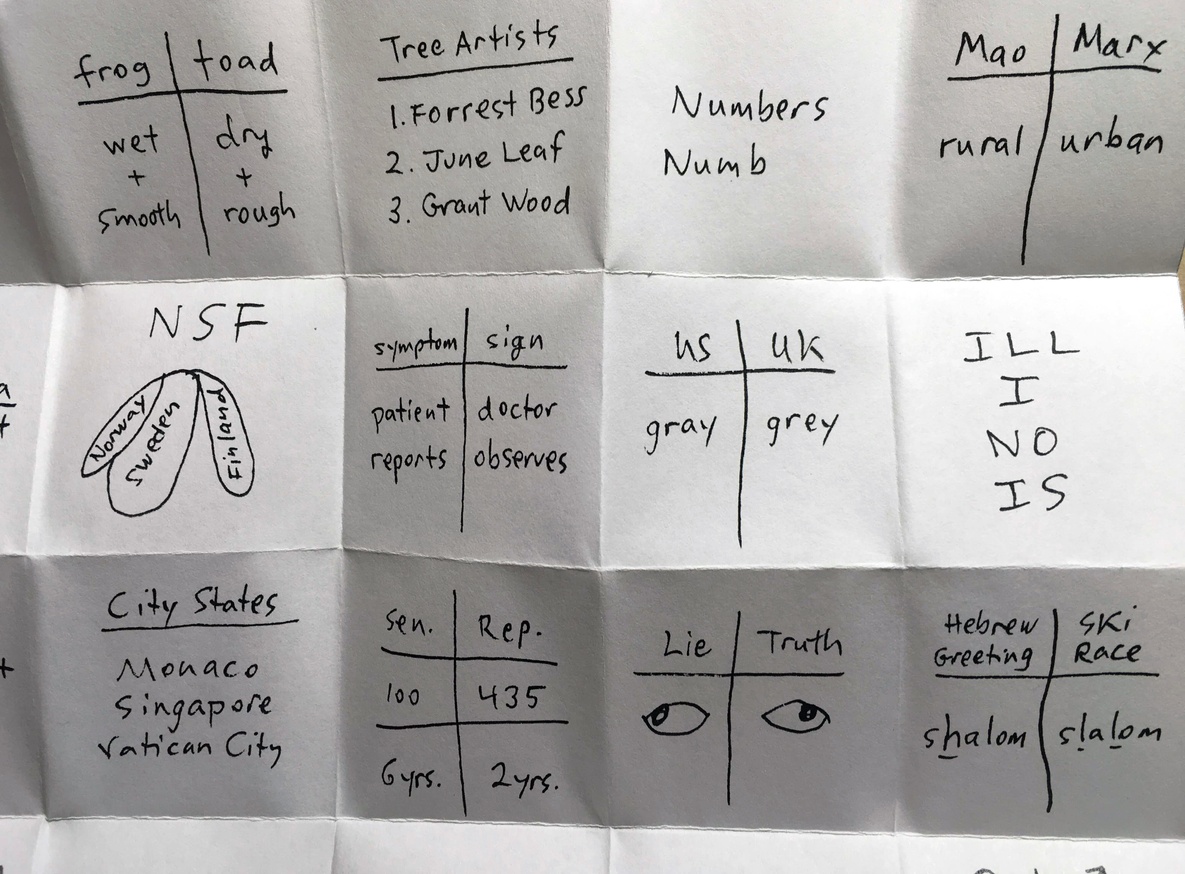 frog | toad
wet | dry
+ | +
smooth | rough
Tree Artists
1. Forrest Bess
2. June Leaf
3. Grant Wood
Numbers
Numb
Mao | Marx
rural | urban
NSF
Norway
Sweden
Finland
symptom | sign
patient | doctor
reports | observes
US | UK
gray | grey
ILL
I
NO
IS
City States
Monaco
Singapore
Vatican City
Sen. | Rep.
100 | 435
6 yrs. | 2 yrs.
Lie | Truth
Hebrew | Ski
Greeting | Race
shalom | slalom